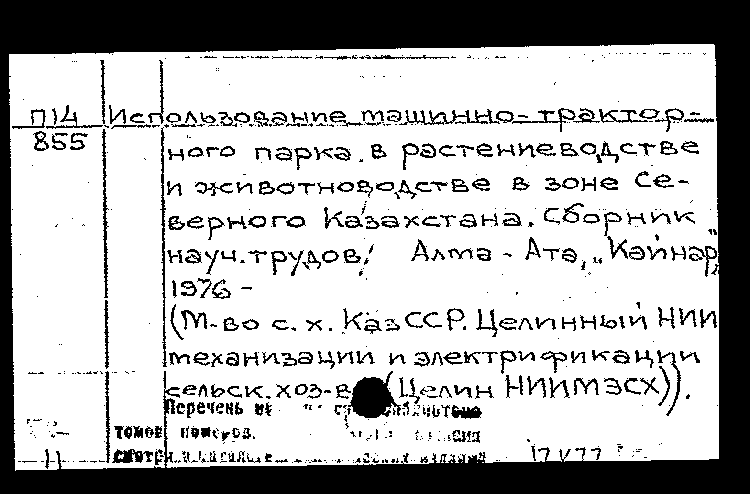 П14 Использование машинно-трактор-
855 ного парка в растениеводстве
и животноводстве в зоне Се-
верного Казахстана. Сборник
науч.трудов. Алма-Ата, „Кайнар"
1976 -
(М-во с.х. КазССР. Целинный НИИ
механизации и электрификации
сельск. хоз-ва (Целин НИИМЭСХ)).
Перечень
томов номеров.
смотри в издания 17 V 77
11